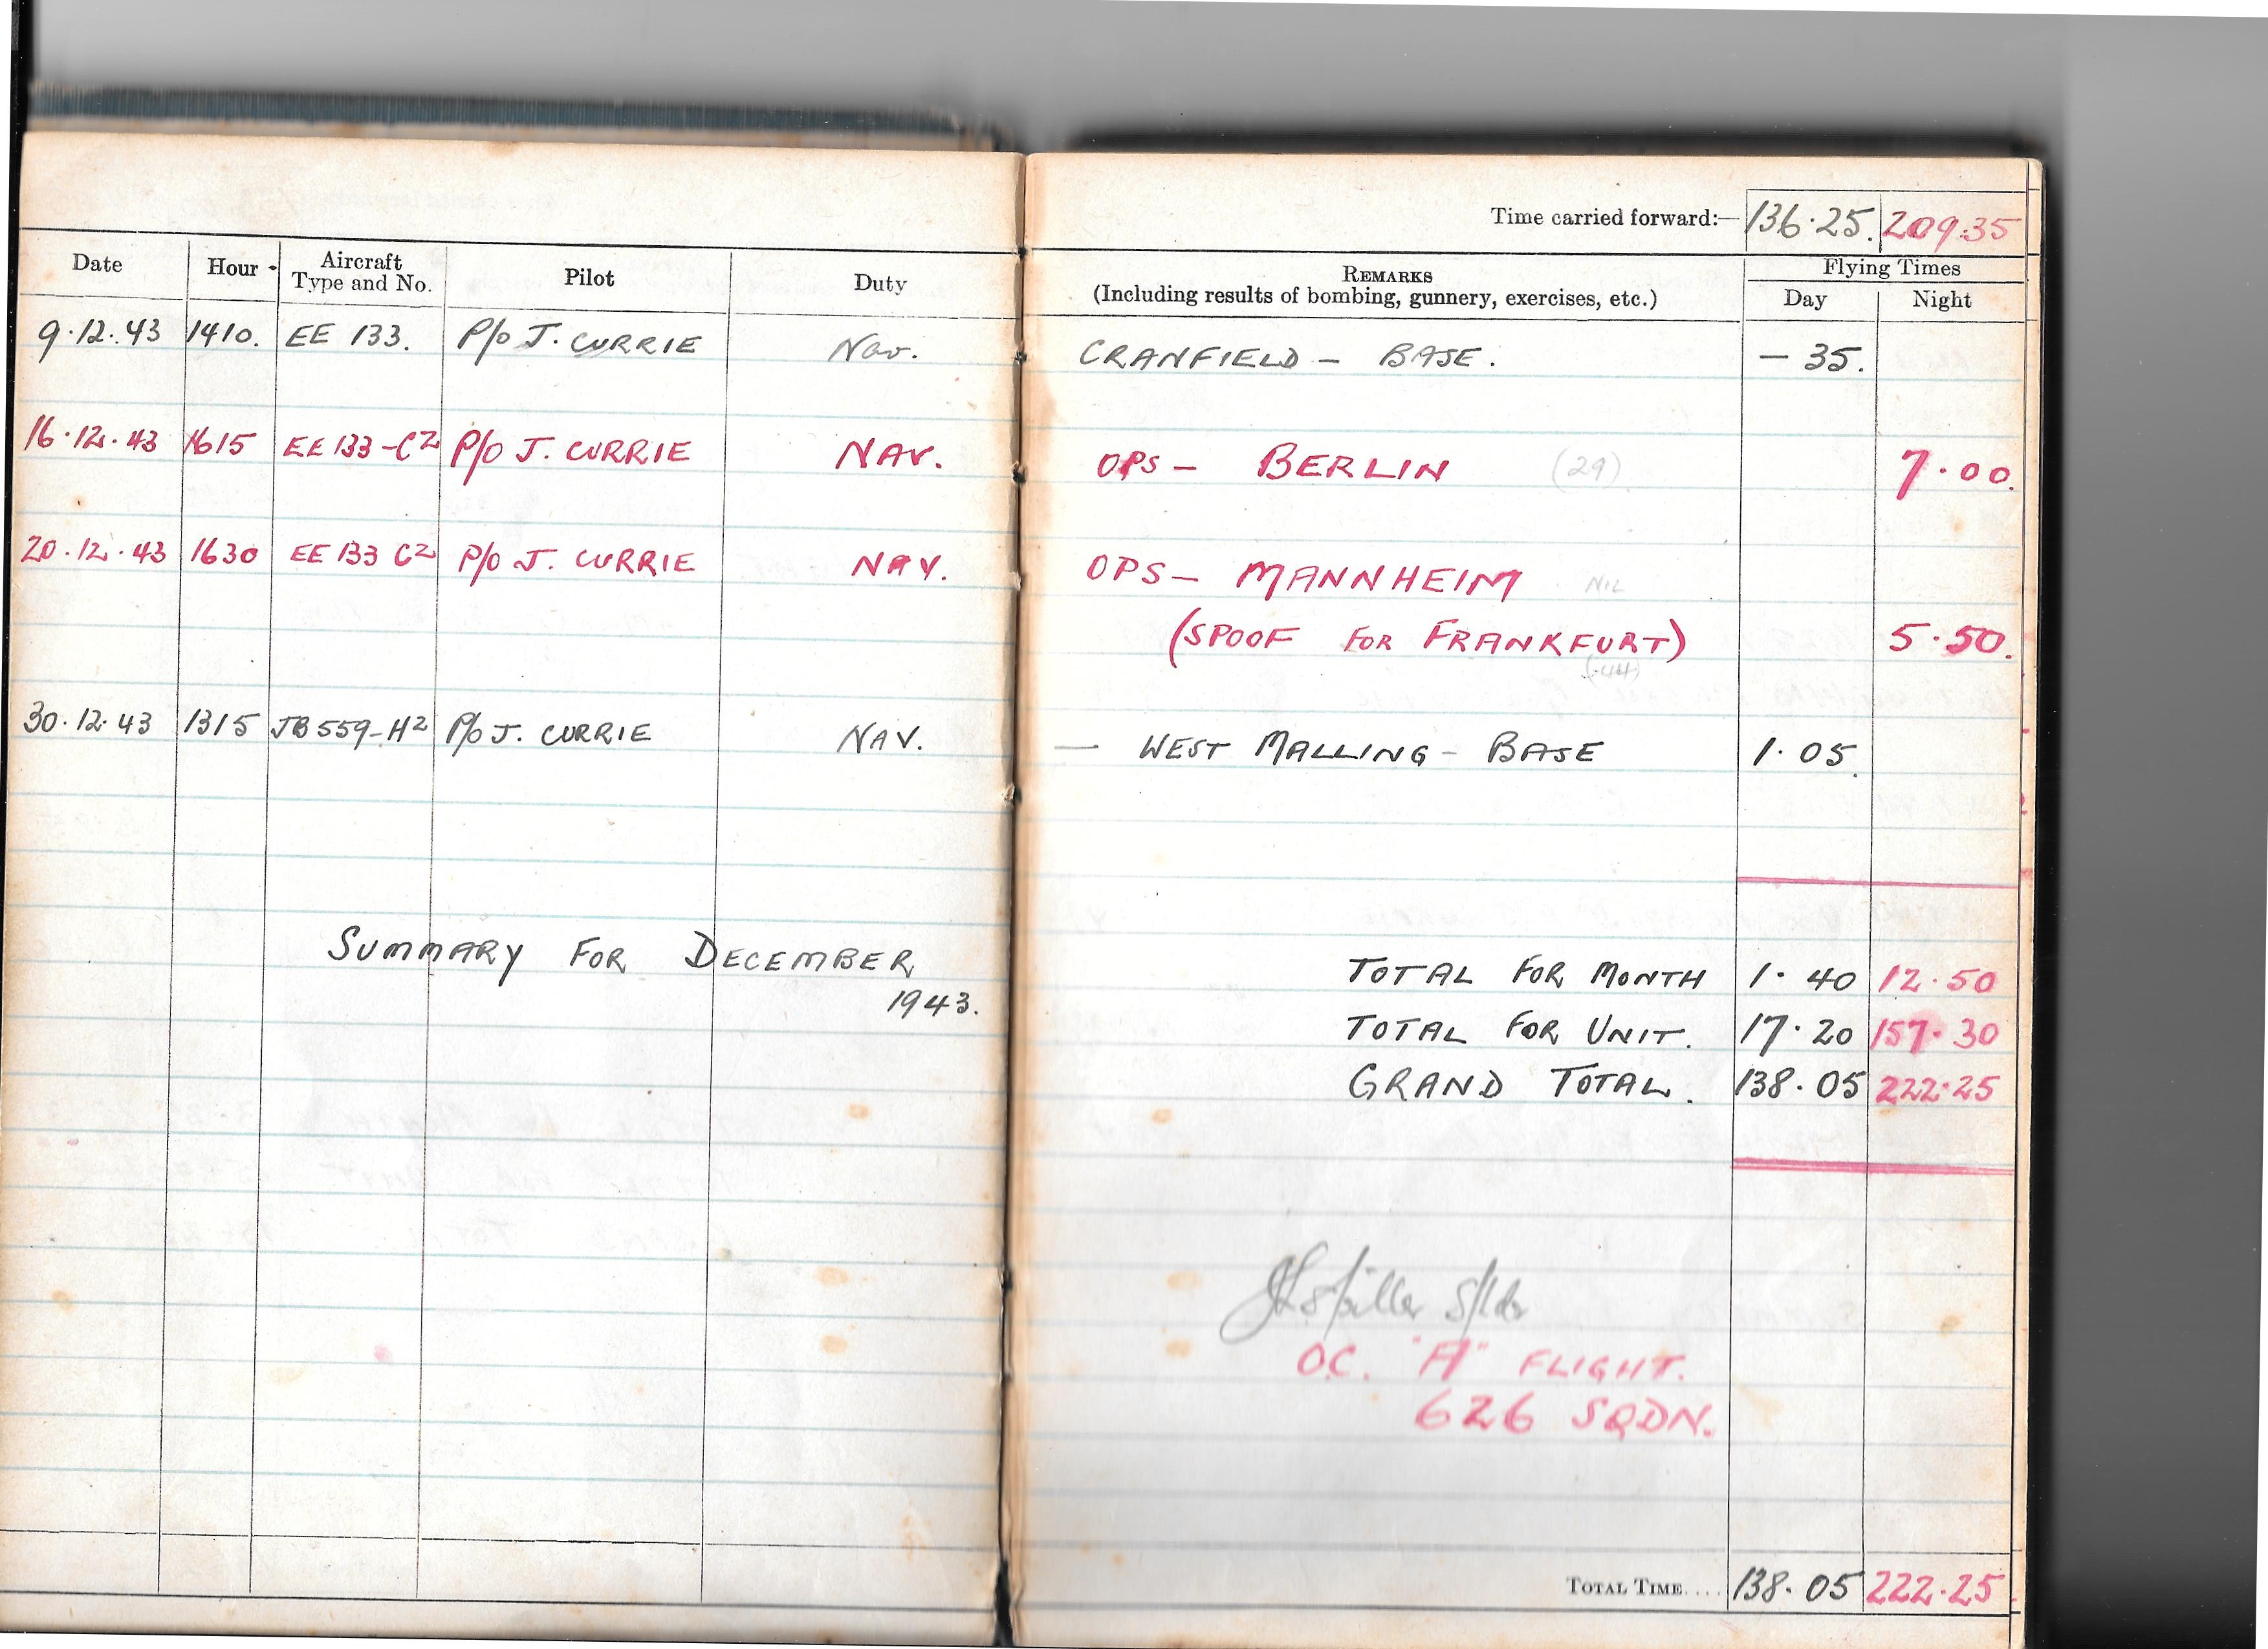 Time carried forward:— 136.25. 209.35
Date Hour Aircraft Type and No. Pilot Duty REMARKS (Including results of bombing, gunnery, exercises, etc.) Flying Times Day Night
9.12.43 1410. EE 133. P/O J. CURRIE Nav. CRANFIELD - BASE. - 35.
16.12.43 1615 EE133-C2 P/O J. CURRIE NAV. OPS - BERLIN (29) 7.00.
20.12.43 1630 EE133 C2 P/O J. CURRIE NAV. OPS - MANNHEIM NIL
(SPOOF FOR FRANKFURT) 5.50.
(44)
30.12.43 1315 JB559-H2 P/O J. CURRIE NAV. — WEST MALLING - BASE 1.05.
SUMMARY FOR DECEMBER
1943.
TOTAL FOR MONTH 1.40 12.50
TOTAL FOR UNIT. 17.20 157.30
GRAND TOTAL. 138.05 222.25
S/Ldr
OC. "A" FLIGHT.
626 SQDN.
TOTAL TIME.... 138.05 222.25